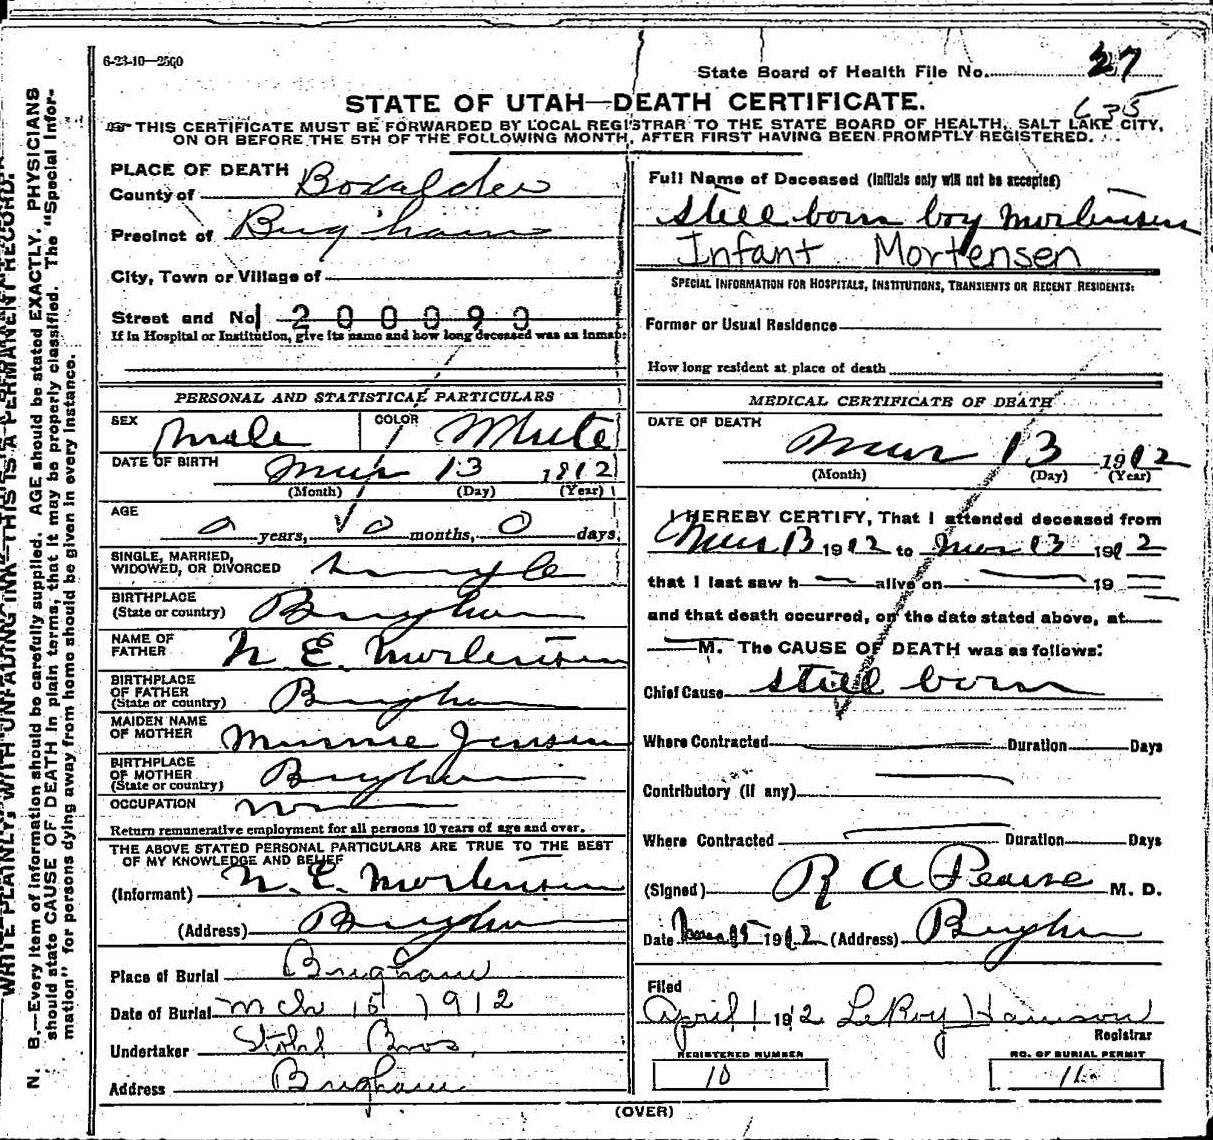 6-23-10—2500
State Board of Health File No. 27
635
STATE OF UTAH—DEATH CERTIFICATE.
THIS CERTIFICATE MUST BE FORWARDED BY LOCAL REGISTRAR TO THE STATE BOARD OF HEALTH, SALT LAKE CITY,
ON OR BEFORE THE 5TH OF THE FOLLOWING MONTH, AFTER FIRST HAVING BEEN PROMPTLY REGISTERED.
WRITE PLAINLY, WITH UNFADING INK—THIS IS A PERMANENT RECORD.
N. B.—Every item of information should be carefully supplied. AGE should be stated EXACTLY. PHYSICIANS
should state CAUSE OF DEATH in plain terms, that it may be properly classified. The "Special Infor-
mation" for persons dying away from home should be given in every instance.
PLACE OF DEATH
County of Boxelder
Precinct of Brigham
City, Town or Village of
Street and No. 1200090
If in Hospital or Institution, give its name and how long deceased was an inmate
PERSONAL AND STATISTICAL PARTICULARS
SEX male COLOR White
DATE OF BIRTH Mar 13 1912
(Month) (Day) (Year)
AGE
0 years, 0 months, 0 days
SINGLE, MARRIED,
WIDOWED, OR DIVORCED single
BIRTHPLACE
(State or country) Brigham
NAME OF
FATHER N. E. Mortensen
BIRTHPLACE
OF FATHER
(State or country) Brigham
MAIDEN NAME
OF MOTHER Minnie Jensen
BIRTHPLACE
OF MOTHER
(State or country) Brigham
OCCUPATION
Return remunerative employment for all persons 10 years of age and over.
THE ABOVE STATED PERSONAL PARTICULARS ARE TRUE TO THE BEST
OF MY KNOWLEDGE AND BELIEF
(Informant) N. E. Mortensen
(Address) Brigham
Place of Burial Brigham
Date of Burial Mch 15 1912
Undertaker Stohl Bros.
Address Brigham
Full Name of Deceased (Initials only will not be accepted)
still born boy Mortensen
Infant Mortensen
SPECIAL INFORMATION FOR HOSPITALS, INSTITUTIONS, TRANSIENTS OR RECENT RESIDENTS:
Former or Usual Residence
How long resident at place of death
MEDICAL CERTIFICATE OF DEATH
DATE OF DEATH
Mar 13 1912
(Month) (Day) (Year)
I HEREBY CERTIFY, That I attended deceased from
Mar 13 1912 to Mar 13 1912
that I last saw h alive on 19
and that death occurred, on the date stated above, at
M. The CAUSE OF DEATH was as follows:
Chief Cause still born
Where Contracted Duration Days
Contributory (If any)
Where Contracted Duration Days
(Signed) R A Pearse M. D.
Date 1912 (Address) Brigham
Filed
April 1 1912 LeRoy
Registrar
REGISTERED NUMBER
10
NO. OF BURIAL PERMIT
11
(OVER)